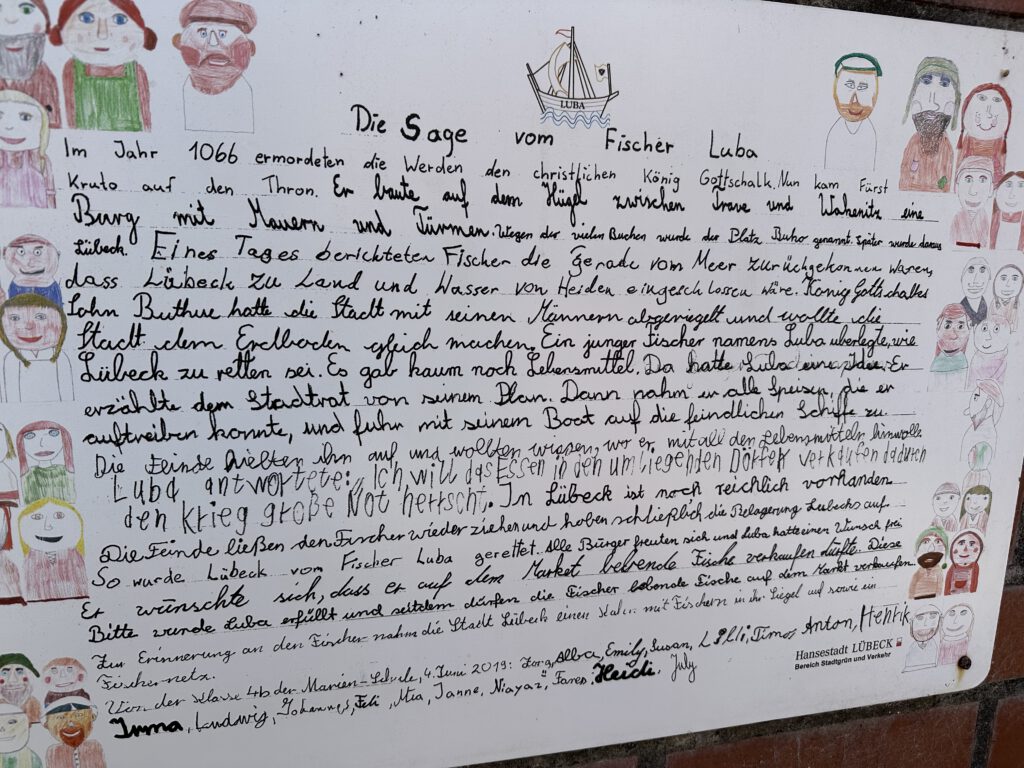 LUBA
Die Sage vom Fischer Luba
Im Jahr 1066 ermordeten die Werden den christlichen König Gottschalk. Nun kam Fürst
Kruto auf den Thron. Er baute auf dem Hügel zwischen Trave und Wakenitz eine
Burg mit Mauern und Türmen. Wegen der vielen Buchen wurde der Platz Buko genannt. Später wurde daraus
Lübeck. Eines Tages berichteten Fischer die gerade vom Meer zurückgekommen waren,
dass Lübeck zu Land und Wasser von Heiden eingeschlossen wäre. König Gottschalks
Sohn Buthue hatte die Stadt mit seinen Männern abgeriegelt und wollte die
Stadt dem Erdboden gleich machen. Ein junger Fischer namens Luba überlegte, wie
Lübeck zu retten sei. Es gab kaum noch Lebensmittel. Da hatte Luba eine Idee. Er
erzählte dem Stadtrat von seinem Plan. Dann nahm er alle Speisen, die er
auftreiben konnte, und fuhr mit seinem Boot auf die feindlichen Schiffe zu.
Die Feinde hielten ihn auf und wollten wissen, wo er mit all den Lebensmitteln hinwolle.
Luba antwortete: „Ich will das Essen in den umliegenden Dörfern verkaufen da durch
den Krieg große Not herrscht. In Lübeck ist noch reichlich vorhanden.
Die Feinde ließen den Fischer wieder ziehen und hoben schließlich die Belagerung Lübecks auf.
So wurde Lübeck vom Fischer Luba gerettet. Alle Bürger freuten sich und Luba hatte einen Wunsch frei
Er wünschte sich, dass er auf dem Market lebende Fische verkaufen dürfte. Diese
Bitte wurde Luba erfüllt und seitdem dürfen die Fischer lebende Fische auf dem Markt verkaufen.
Zur Erinnerung an den Fischer nahm die Stadt Lübeck einen Kahn mit Fischern in ihr Siegel auf sowie ein
Fischernetz.
Von der Klasse 4b der Marien-Schule, 4. Juni 2019: Alba, Emily, Susan, Lilli, Timo, Anton, Henrik
Imma, Ludwig, Johannes, Feli, Mia, Janne, Niayaz, Fares, Heidi, July
Hansestadt LÜBECK
Bereich Stadtgrün und Verkehr